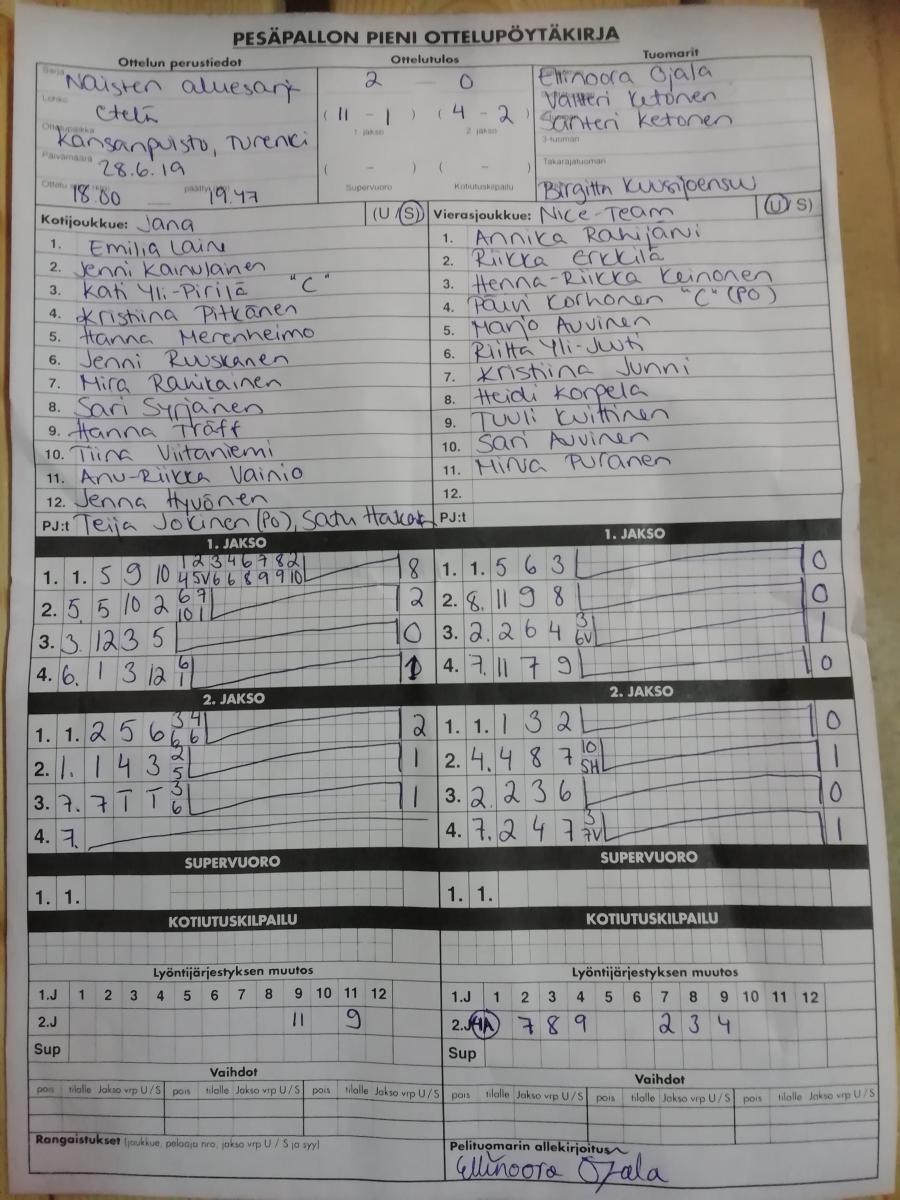 PESÄPALLON PIENI OTTELUPÖYTÄKIRJA
Ottelun perustiedot Ottelutulos Tuomarit
Sarja Naisten aluesarj 2 — 0 Elinoora Ojala
Lohko Etelä ( 11 - 1 ) ( 4 - 2 ) Valtteri Ketonen
1. jakso 2. jakso Santteri Ketonen
Ottelupaikka Kansanpuisto, Turenki 3-tuomari
Päivämäärä 28.6.19 ( - ) ( - ) Takarajatuomari
Ottelu 18.00 — päättyi 19.47 Supervuoro Kotiutuskilpailu Birgitta Kuusijoensuu
Kotijoukkue: Jana (U / S) Vierasjoukkue: Nice-Team (U / S)
1. Emilia Laine 1. Annika Rahijärvi
2. Jenni Kainulainen 2. Riikka Erkkilä
3. Kati Yli-Pirilä "C" 3. Henna-Riikka Keinonen
4. Kristiina Pitkänen 4. Päivi Korhonen "C" (PO)
5. Hanna Merenheimo 5. Marjo Auvinen
6. Jenni Ruuskanen 6. Riitta Yli-Juuti
7. Mira Rahikainen 7. Kristiina Junni
8. Sari Syrjänen 8. Heidi Korpela
9. Hanna Träff 9. Tuuli Kvittinen
10. Tiina Viitaniemi 10. Sari Auvinen
11. Anu-Riikka Vainio 11. Mirva Puranen
12. Jenna Hyvönen 12.
PJ:t Teija Jokinen (PO), Satu PJ:t
1. JAKSO 1. JAKSO
1 2 3 4 6 7 8 2
1. 1. 5 9 10 4 5V 6 6 8 9 9 10 8 1. 1. 5 6 3 0
6 7
2. 5. 5 10 2 10 1 2 2. 8. 11 9 8 0
3
3. 3. 12 3 5 0 3. 2. 2 6 4 6V 1
6
4. 6. 1 3 12 1 1 4. 7. 11 7 9 0
2. JAKSO 2. JAKSO
3 4
1. 1. 2 5 6 6 6 2 1. 1. 1 3 2 0
2 10
2. 1. 1 4 3 5 1 2. 4. 4 8 7 SH 1
3
3. 7. 7 T T 6 1 3. 2. 2 3 6 0
3
4. 7. 4. 7. 2 4 7 7V 1
SUPERVUORO SUPERVUORO
1. 1. 1. 1.
KOTIUTUSKILPAILU KOTIUTUSKILPAILU
Lyöntijärjestyksen muutos Lyöntijärjestyksen muutos
1.J 1 2 3 4 5 6 7 8 9 10 11 12 1.J 1 2 3 4 5 6 7 8 9 10 11 12
2.J 11 9 2.J 4A 7 8 9 2 3 4
Sup Sup
Vaihdot Vaihdot
pois tilalle Jakso vrp U / S pois tilalle Jakso vrp U / S pois tilalle Jakso vrp U / S pois tilalle Jakso vrp U / S pois tilalle Jakso vrp U / S pois tilalle Jakso vrp U / S
Rangaistukset (joukkue, pelaaja nro, jakso vrp U / S ja syy) Pelituomarin allekirjoitus
Ellinoora Ojala